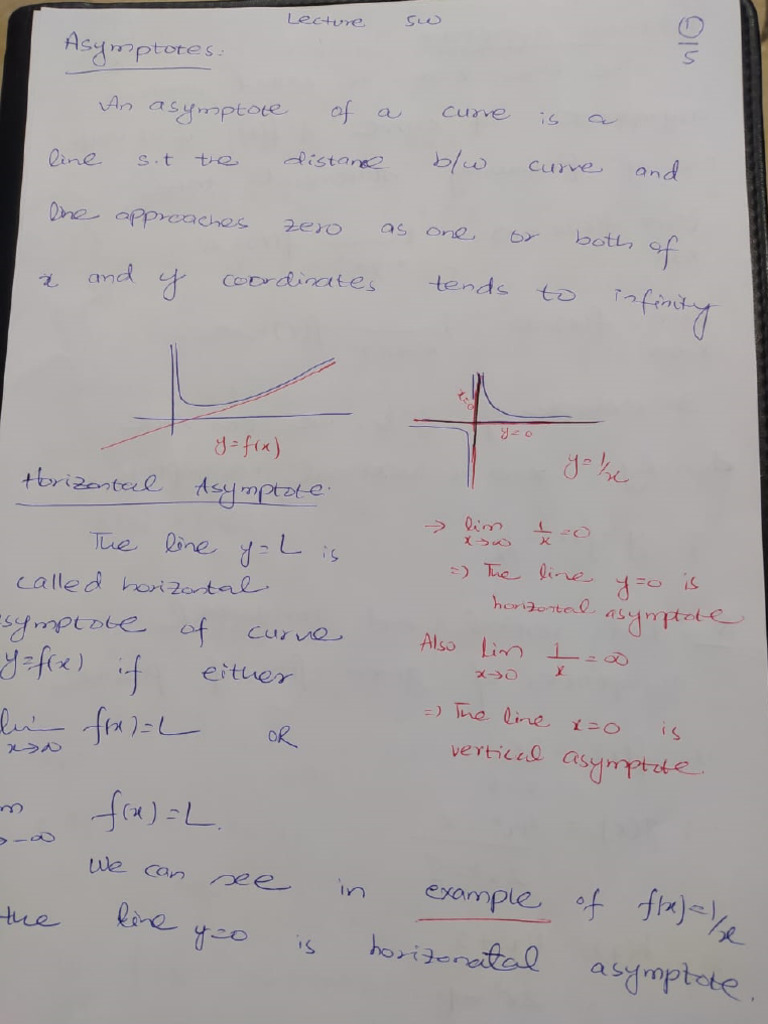 Lecture 5W
1/5
Asymptotes:
An asymptote of a curve is a
line s.t the distance b/w curve and
line approaches zero as one or both of
x and y coordinates tends to infinity
y=f(x)
x=0
y=0
y=1/x
Horizontal Asymptote.
The line y=L is
called horizontal
asymptote of curve
y=f(x) if either
lim x→∞ f(x)=L OR
m →-∞ f(x)=L.
→ lim x→∞ 1/x=0
=) The line y=0 is
horizontal asymptote
Also Lim x→0 1/x=∞
=) The line x=0 is
vertical asymptote.
We can see in example of f(x)=1/x
the line y=0 is horizonatal asymptote.